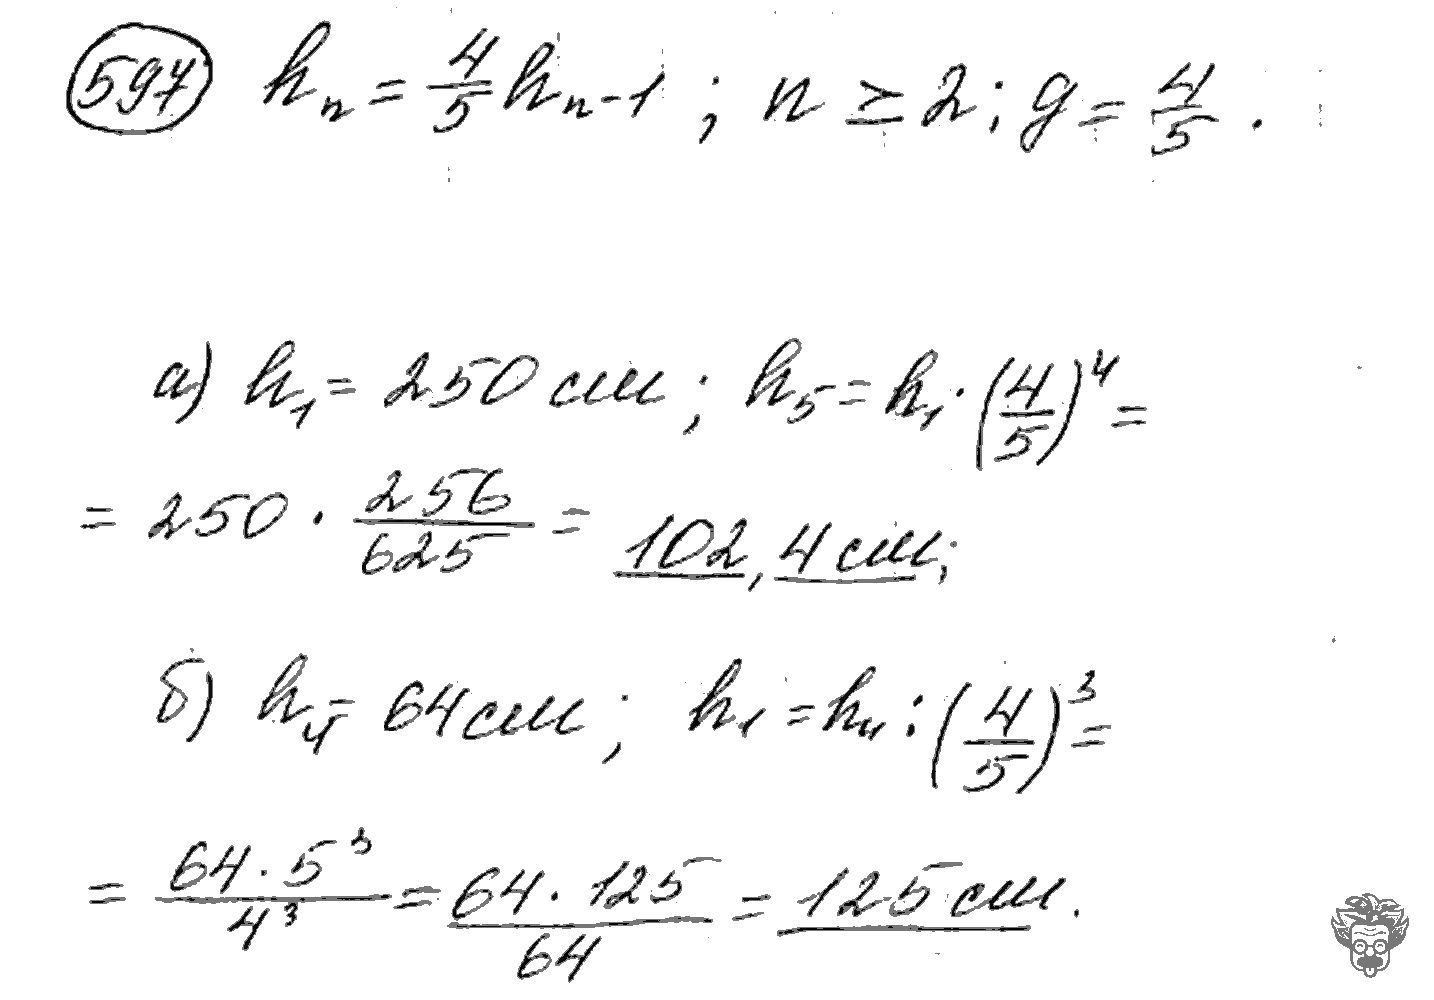 597 hₙ = 4/5 hₙ₋₁ ; n ≥ 2 ; g = 4/5 .
а) h₁ = 250 см ; h₅ = h₁ · (4/5)⁴ =
= 250 · 256/625 = 102,4 см;
б) h₄ = 64 см ; h₁ = h₄ : (4/5)³ =
= 64 · 5³/4³ = 64 · 125/64 = 125 см.